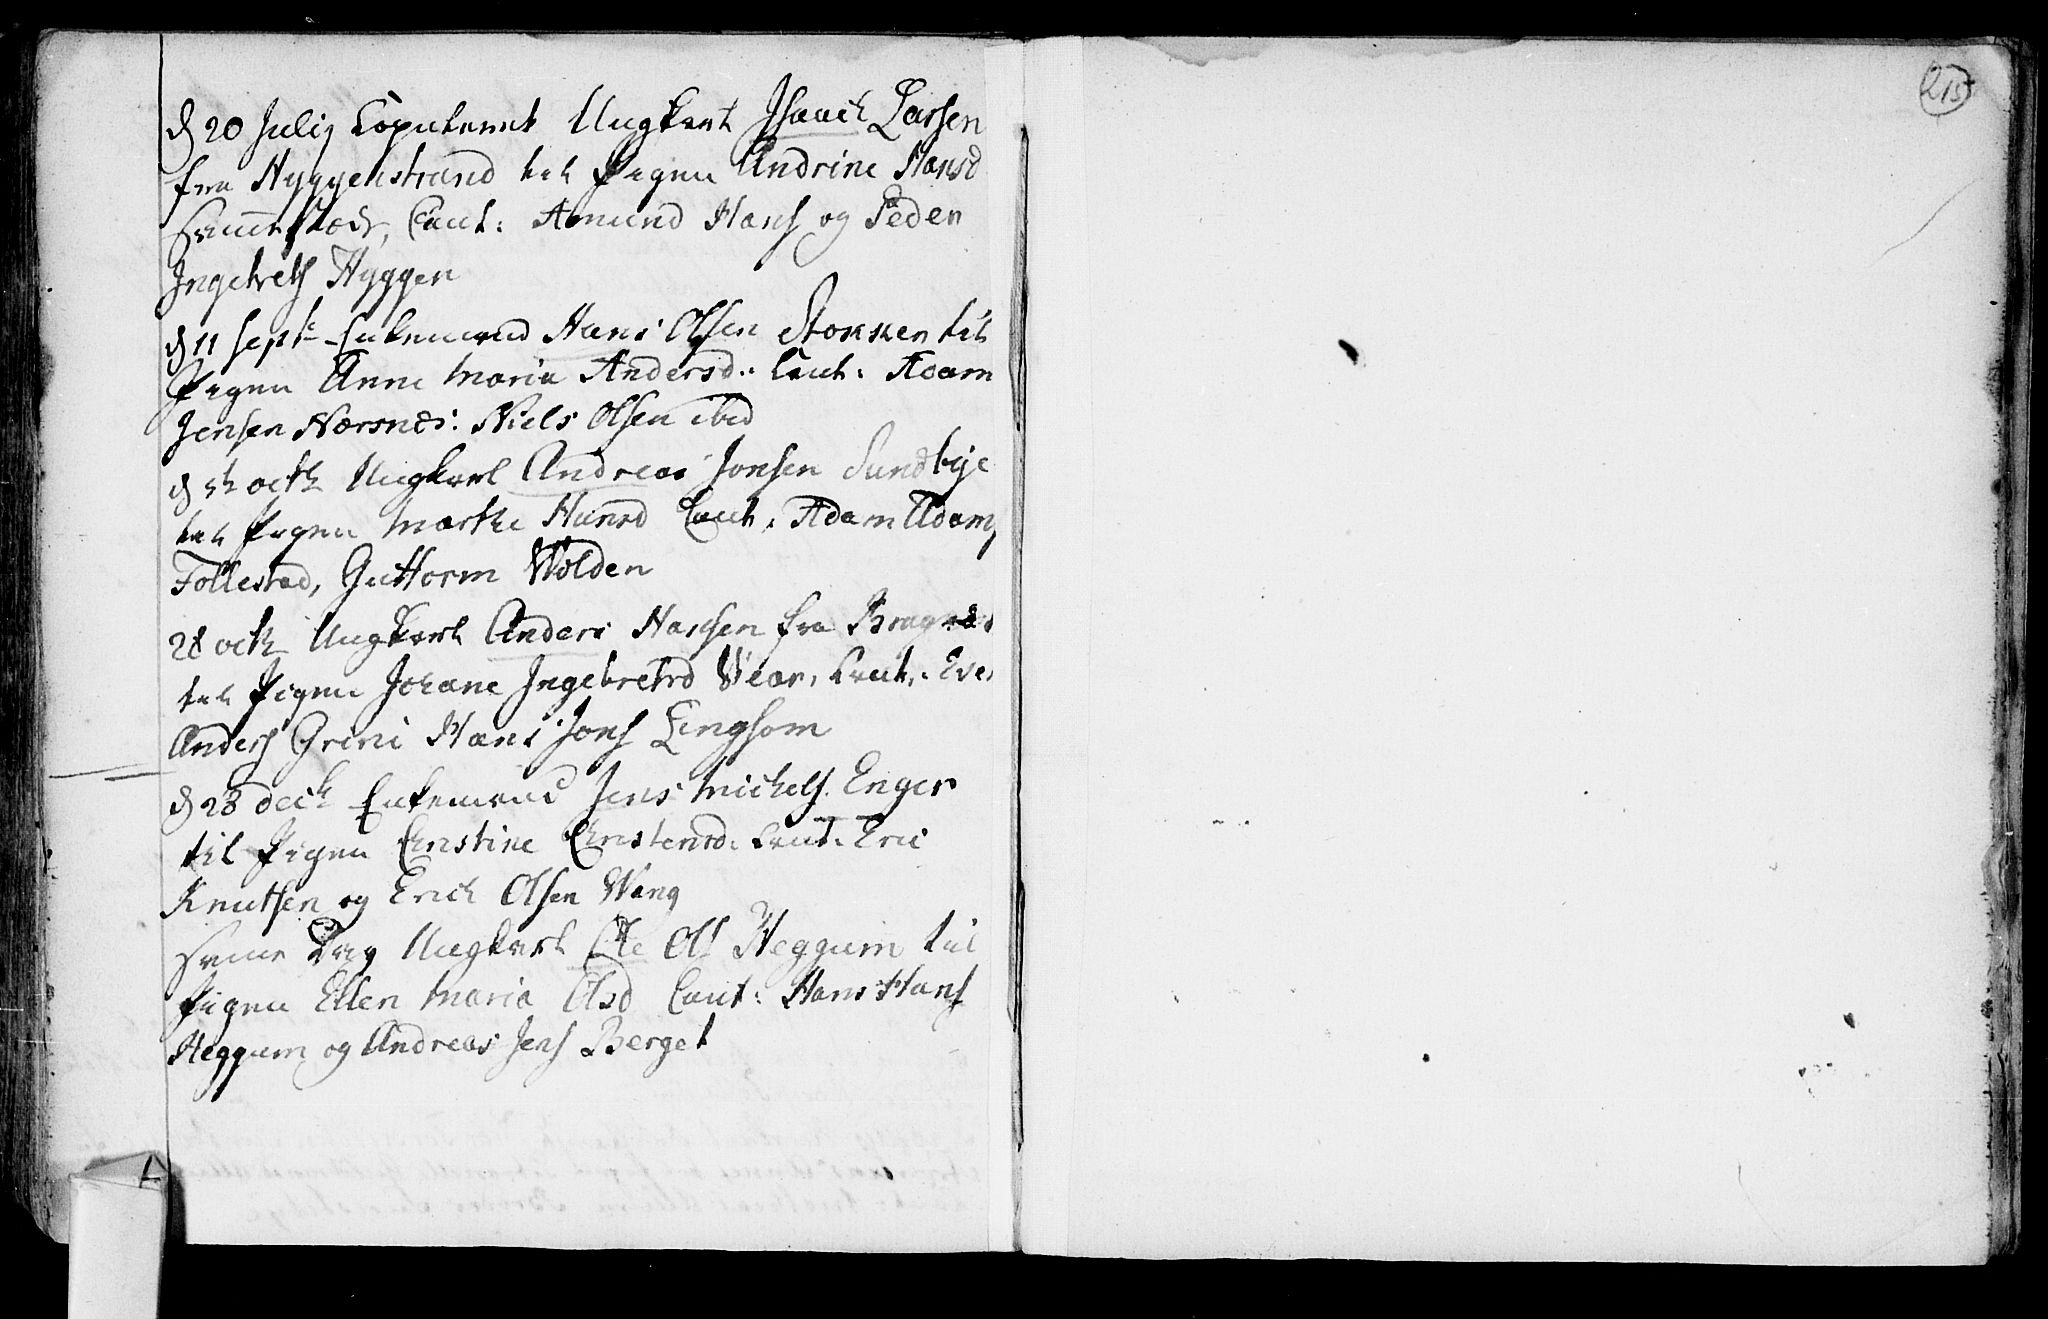 215
d 20 Julij Copuleret Ungkarl Isaach Larsen
fra Hyggenstrand til Pigen Andrine Hansd
Caut: Amund Hans og Peder
Ingebrets Hyggen
d 11 Sept Enkemand Hans Olsen Stokker til
Pigen Anne Maria Andersd: Caut: Adam
Jensen Nærsnes: Niels Olsen ibid
d octb Ungkarl Andreas Jonsen Sundbye
til Pigen Marthe Hansd Caut: Adam Adams
Follestad, Guttorm Wolden
28 octb Ungkarl Anders Hansen fra Bragnæs
til Pigen Johane Ingebretsd Wear, Caut: Eve
Anders Grini Hans Jons Lingsom
d 28 decb Enkemand Jens Michels. Enger
til Pigen Christine Christensd: Caut: Eric
Knutsen og Erich Olsen Wang
samme Dag Ungkarl Ole Ols Heggum til
Pigen Ellen Maria Olsd Caut: Hans Hans
Heggum og Andreas Jens Berget